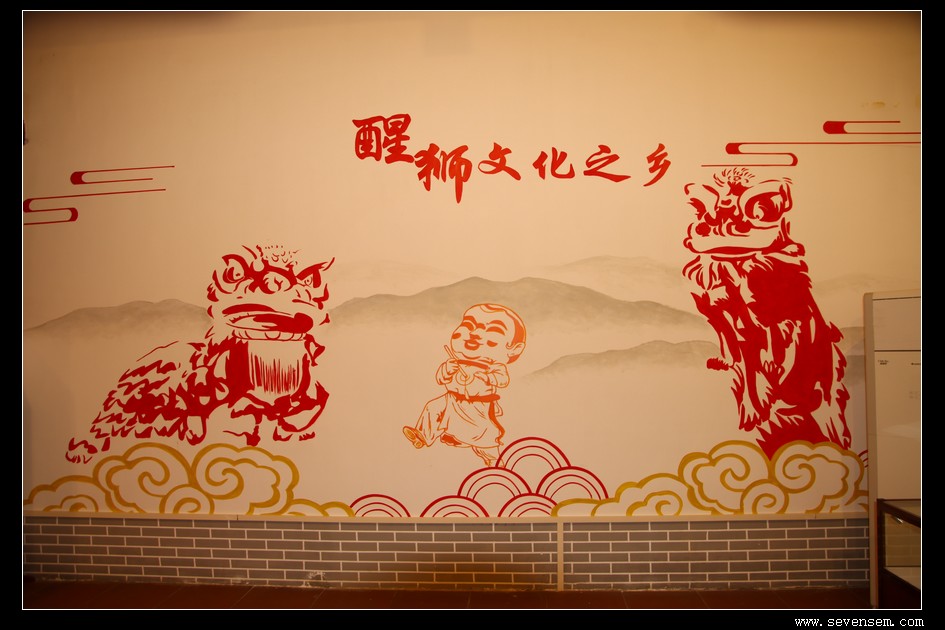 醒狮文化之乡
www.sevensem.com